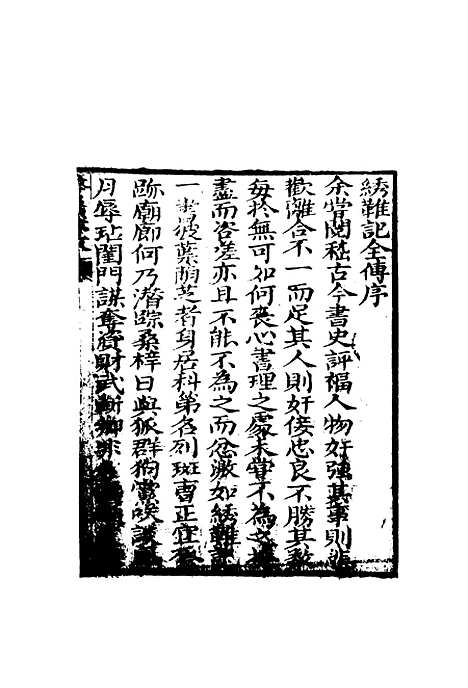 綉鞋記全傳序
余嘗閱嵇古今書史評福人物好強其事則悲
歡離合不一而足其人則奸佞忠良不勝其數
每於無可如何喪心書理之處未嘗不為文之
盡而咨嗟亦且不能不為之而忿激如綉鞋記
一書彼葉蔭芝者身居科第名列班曹正宜
跡廟廊何乃潛踪桑梓日與狐群狗黨
月辱玷閨門謀奪資財武斷鄉